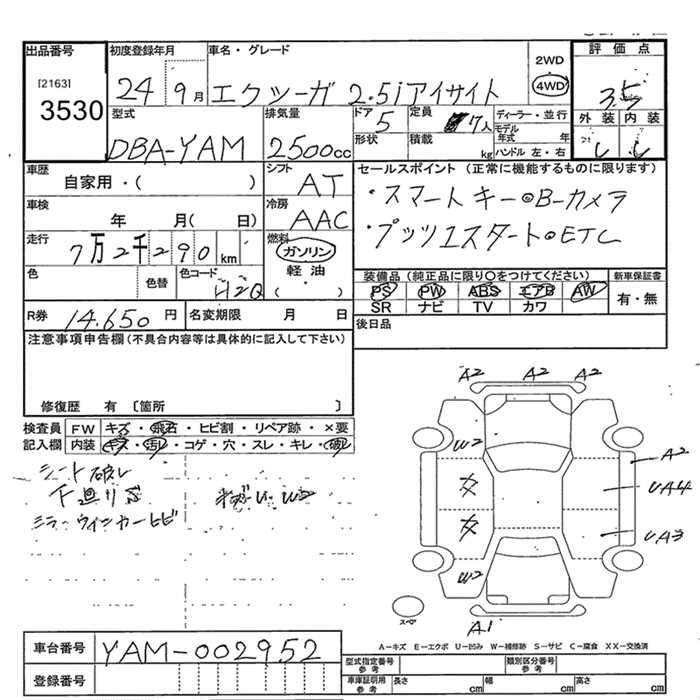 出品番号
[2163]
3530
初度登録年月
24 9月
車名・グレード
エクシーガ 2.5iアイサイト
2WD
4WD
評価点
3.5
外装 内装
型式
DBA-YAM
排気量
2500cc
ドア 5
形状
定員 7人
積載 kg
ディーラー・並行
モデル年式 年
ハンドル 左・右
車歴
自家用・( )
シフト
AT
セールスポイント (正常に機能するものに限ります)
・スマートキー◎B-カメラ
・プッツユスタート◎ETC
車検
年 月( 日)
冷房
AAC
走行
7万2千290km
燃料
ガソリン
軽油
( ・ )
色
色替
色コード
H2Q
装備品(純正品に限り〇をつけてください)
PS PW ABS エアB AW
SR ナビ TV カワ
新車保証書
有・無
R券 14.650円
名変期限 月 日
後日品
注意事項申告欄(不具合内容等は具体的に記入して下さい)
修復歴 有 〔箇所 〕
検査員記入欄
FW キズ・飛石・ヒビ割・リペア跡・×要
内装 キズ・汚れ・コゲ・穴・スレ・キレ・破れ
シート破れ
下廻りS
ミラーウィンカーヒビ
A2 A2 A2
W2
A2
UA4
UA3
W2
A1
スペア
A-キズ E-エクボ U-凹み W-補修跡 S-サビ C-腐食 XX-交換済
車台番号 YAM-002952
登録番号
型式指定番号 参考
類別区分番号 参考
車庫証明用 参考
長さ cm 幅 cm 高さ cm